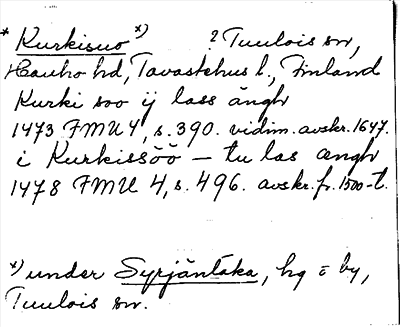 * Kurkisuo *) ? Tuulois sn,
Hauho hd, Tavastehus l., Finland
Kurki soo ij lass ängh
1473 FMU 4, s. 390. vidim. avskr. 1647.
i Kurkissöö – tu las ængh
1478 FMU 4, s. 496. avskr. fr. 1500-t.
*) under Syrjäntaka, hg = by,
Tuulois sn.